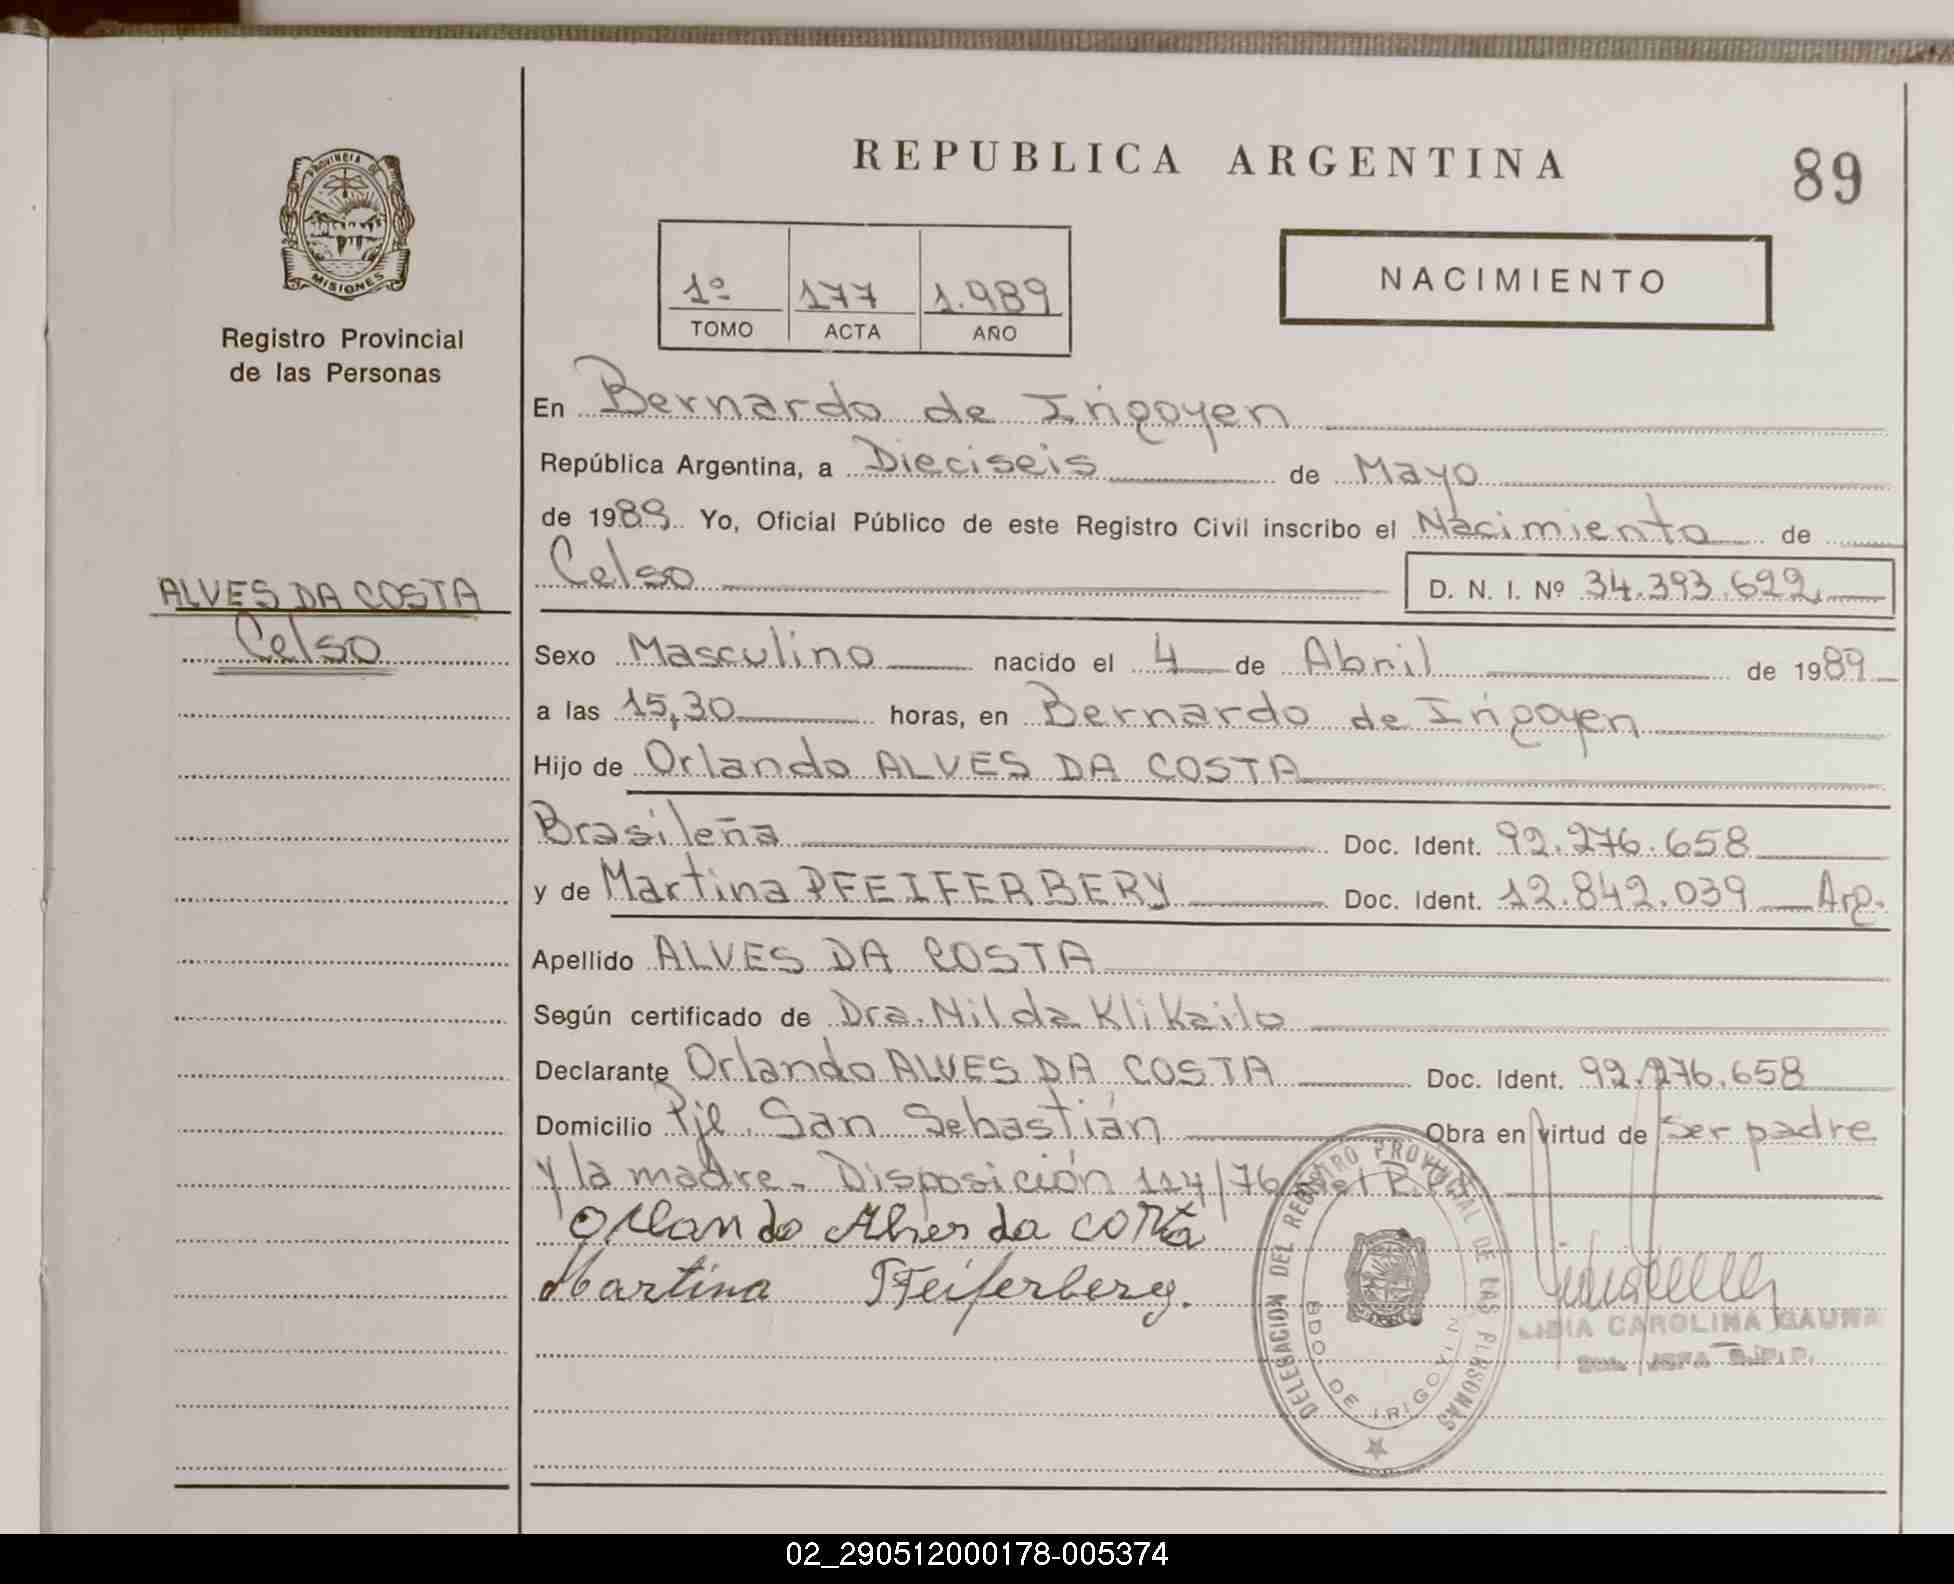 PROVINCIA DE
MISIONES
Registro Provincial
de las Personas
ALVES DA COSTA
Celso
REPUBLICA ARGENTINA
89
1º 177 1.989
TOMO ACTA AÑO
NACIMIENTO
En Bernardo de Irigoyen
República Argentina, a Dieciseis de Mayo
de 1989. Yo, Oficial Público de este Registro Civil inscribo el Nacimiento de
Celso D. N. I. Nº 34.393.622
Sexo Masculino nacido el 4 de Abril de 1989
a las 15,30 horas, en Bernardo de Irigoyen
Hijo de Orlando ALVES DA COSTA
Brasileña Doc. Ident. 92.276.658
y de Martina PFEIFERBERY Doc. Ident. 12.842.039 Arg.
Apellido ALVES DA COSTA
Según certificado de Dra. Nilda Klikailo
Declarante Orlando ALVES DA COSTA Doc. Ident. 92.276.658
Domicilio Pje. San Sebastián Obra en virtud de Ser padre
y la madre. Disposición 114/76 del
Orlando Alves da costa
Martina Pfeiferberg.
DELEGACION DEL REGISTRO PROVINCIAL DE LAS PERSONAS
BDO. DE IRIGOYEN
LIDIA CAROLINA GAUNA
JEFA R.P.P.
02_290512000178-005374